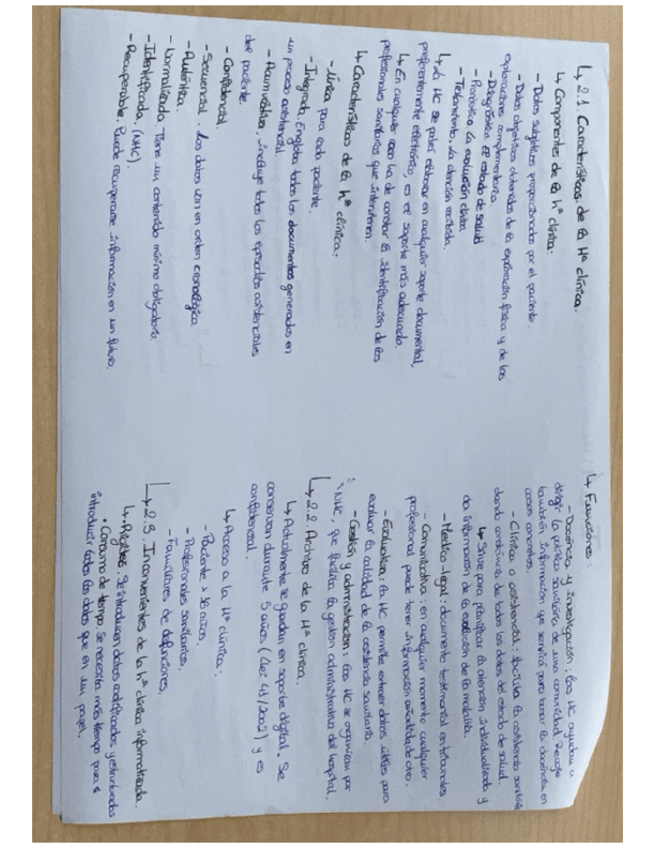 ↳ 2.1. Características de la Hª clínica.
↳ Componentes de la hª clínica:
- Datos subjetivos proporcionados por el paciente.
- Datos objetivos obtenidos de la exploración física y de las
exploraciones complementaria.
- Diagnóstico. El estado de salud
- Pronóstico. La evolución clínica.
- Tratamiento. La atención recibida.
↳ La HC se puede elaborar en cualquier soporte documental,
preferentemente electrónico, es el soporte más adecuado.
↳ En cualquier caso ha de constar la identificación de los
profesionales sanitarios que intervienen.
↳ Características de la hª clínica:
- Única para cada paciente.
- Integrada, Engloba todos los documentos generados en
un proceso asistencial.
- Acumulativa, incluye todos los episodios asistenciales
del paciente.
- Confidencial.
- Secuencial. Los datos van en orden cronológico.
- Auténtica.
- Normalizada. Tiene un contenido mínimo obligatorio.
- Identificada. (NHC).
- Recuperable. Puede recuperarse información en un futuro.
↳ Funciones:
- Docencia y investigación: las HC ayudan a
dirigir la política sanitaria de una comunidad. Recoge
también información que servirá para basar la docencia en
casos concretos.
- Clínica o asistencial: facilita la asistencia sanitaria
dando constancia de todos los datos del estado de salud.
↳ Sirve para planificar la atención individualizada y
da información de la evolución de la malaltia.
- Médico-legal: documento testimonial en tribunales
- Comunicativa: en cualquier momento cualquier
profesional puede tener información de otro.
- Evaluativa: la HC permite extraer datos útiles para
evaluar la calidad de la asistencia sanitaria.
- Gestión y administración: las HC se organizan por
NHC, que facilita la gestión administrativa del hospital.
↳ 2.2. Archivo de la Hª clínica.
↳ Actualmente se guardan en soporte digital. Se
conservan durante 5 años (Lei 41/2002) y es
confidencial.
↳ Acceso a la Hª clínica:
- Paciente > 16 años.
- Profesionales sanitarios.
- Familiares de defunciones.
↳ 2.3. Inconvenientes de la hª clínica informatizada.
↳ • Rigidez. Se introducen datos codificados y estructurados
• Consumo de tiempo. Se necesita más tiempo para
introducir todos los datos que en un papel.